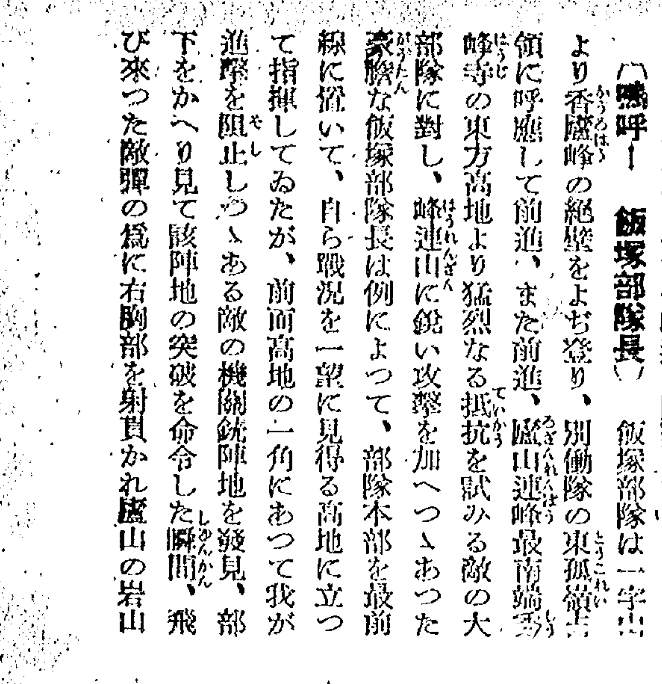 (嗚呼！ 飯塚部隊長) 飯塚部隊は一字山
より香廬峰の絶壁をよぢ登り、別働隊の東孤嶺占
領に呼應して前進、また前進、廬山連峰最南端
峰寺の東方高地より猛烈なる抵抗を試みる敵の大
部隊に對し、峰連山に銳い攻擊を加へつゝあつた
豪膽な飯塚部隊長は例によつて、部隊本部を最前
線に置いて、自ら戰況を一望に見得る高地に立つ
て指揮してゐたが、前面高地の一角にあつて我が
進擊を阻止しつゝある敵の機關銃陣地を發見、部
下をかへり見て該陣地の突破を命令した瞬間、飛
び來つた敵彈の爲に右胸部を射貫かれ廬山の岩山